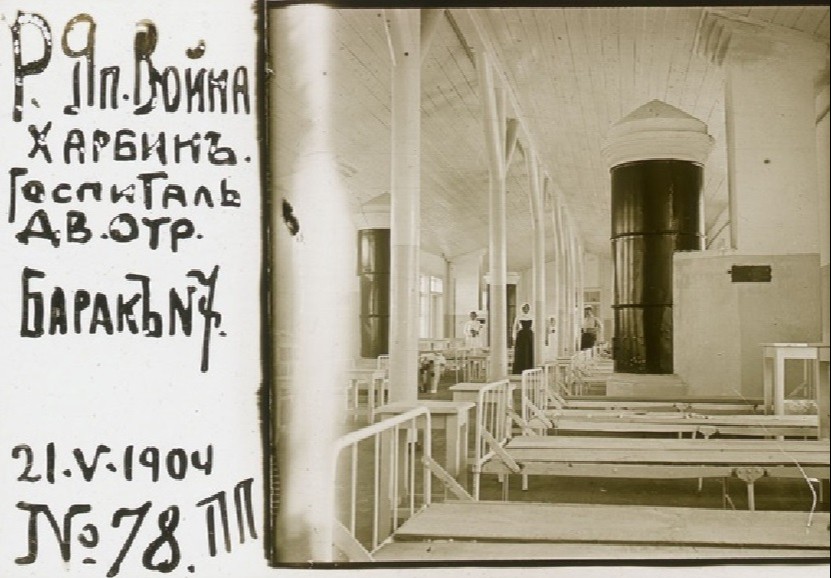 Р. Яп. Война
Харбинъ.
Госпиталь
Дв. Отр.
Баракъ №
21.V.1904
№ 78. ПП